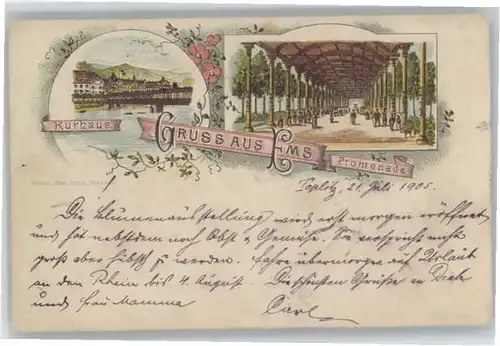 Kurhaus.
GRUSS AUS EMS
Promenade
Teplitz, 21. Juli 1905.
Die Blumenausstellung wird erst morgen eröffnet
und hat nebstdem noch Obst & Gemüse. Sie verspricht nicht
groß aber hübsch zu werden. Fahre übermorgen auf Urlaub
an den Rhein bis 4. August. Die schönsten Grüße an Dich
und Frau Mamma
Carl